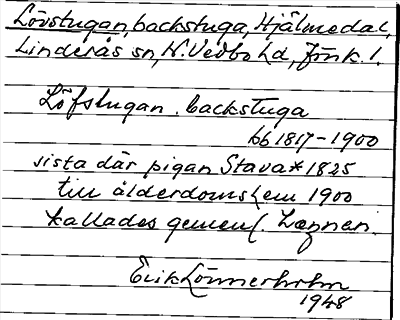 Lövstugan, backstuga, Hjälmedal,
Linderås sn, N. Vedbo hd, Jönk. l.
Löfstugan. backstuga
hb 1817-1900
sista där pigan Stava * 1825
till ålderdomshem 1900
kallades gemenl.
Erik Lönnerholm
1948